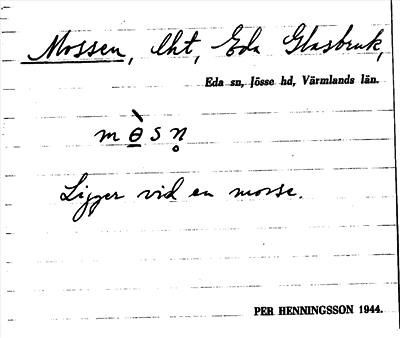 Mossen, lht, Eda Glasbruk,
Eda sn, Jösse hd, Värmlands län.
mɵ̀sn̥
Ligger vid en mosse.
PER HENNINGSSON 1944.